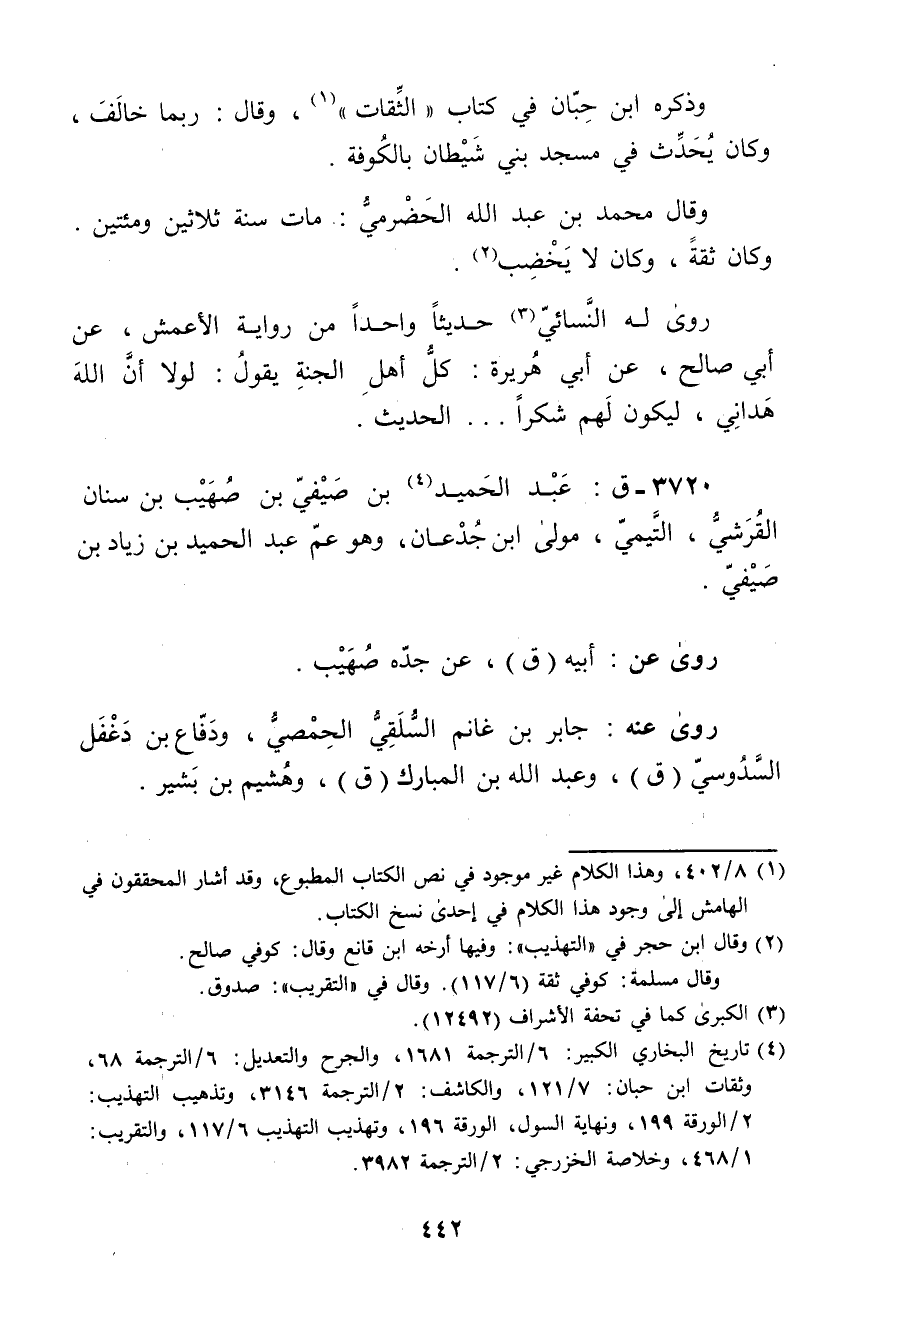 وذكره ابن حِبّان في كتاب « الثِّقات »(١) ، وقال : ربما خالَفَ ،
وكان يُحَدِّث في مسجد بني شَيْطان بالكُوفة .
وقال محمد بن عبد الله الحَضْرميُّ : مات سنة ثلاثين ومئتين .
وكان ثقةً ، وكان لا يَخْضِب(٢) .
روىٰ لـه النَّسائيّ(٣) حـديثاً واحـداً من روايـة الأعمش ، عن
أبي صالح ، عن أبي هُريرة : كلُّ أهلِ الجنةِ يقولُ : لولا أنَّ اللهَ
هَدانِي ، ليكون لَهم شكراً . . . الحديث .
٣٧٢٠ - ق : عَبْـد الحَميـد(٤) بن صَيْفيّ بن صُهَيْب بن سنان
القُرَشيُّ ، التَّيميّ ، مولىٰ ابن جُدْعـان، وهو عمّ عبد الحميد بن زياد بن
صَيْفيّ .
روىٰ عن : أبيه ( ق ) ، عن جدّه صُهَيْب .
روىٰ عنه : جابر بن غانم السُّلَقِيُّ الحِمْصيُّ ، ودَفّاع بن دَغْفَل
السَّدُوسيّ ( ق ) ، وعبد الله بن المبارك ( ق ) ، وهُشيم بن بَشير .
(١) ٤٠٢/٨، وهذا الكلام غير موجود في نص الكتاب المطبوع، وقد أشار المحققون في
الهامش إلىٰ وجود هذا الكلام في إحدىٰ نسخ الكتاب.
(٢) وقال ابن حجر في «التهذيب»: وفيها أرخه ابن قانع وقال: كوفي صالح.
وقال مسلمة: كوفي ثقة (١١٧/٦). وقال في «التقريب»: صدوق.
(٣) الكبرىٰ كما في تحفة الأشراف (١٢٤٩٢).
(٤) تاريخ البخاري الكبير: ٦/الترجمة ١٦٨١، والجرح والتعديل: ٦/الترجمة ٦٨،
وثقات ابن حبان: ١٢١/٧، والكاشف: ٢/الترجمة ٣١٤٦، وتذهيب التهذيب:
٢/الورقة ١٩٩، ونهاية السول، الورقة ١٩٦، وتهذيب التهذيب ١١٧/٦، والتقريب:
٤٦٨/١، وخلاصة الخزرجي: ٢/الترجمة ٣٩٨٢.
٤٤٢